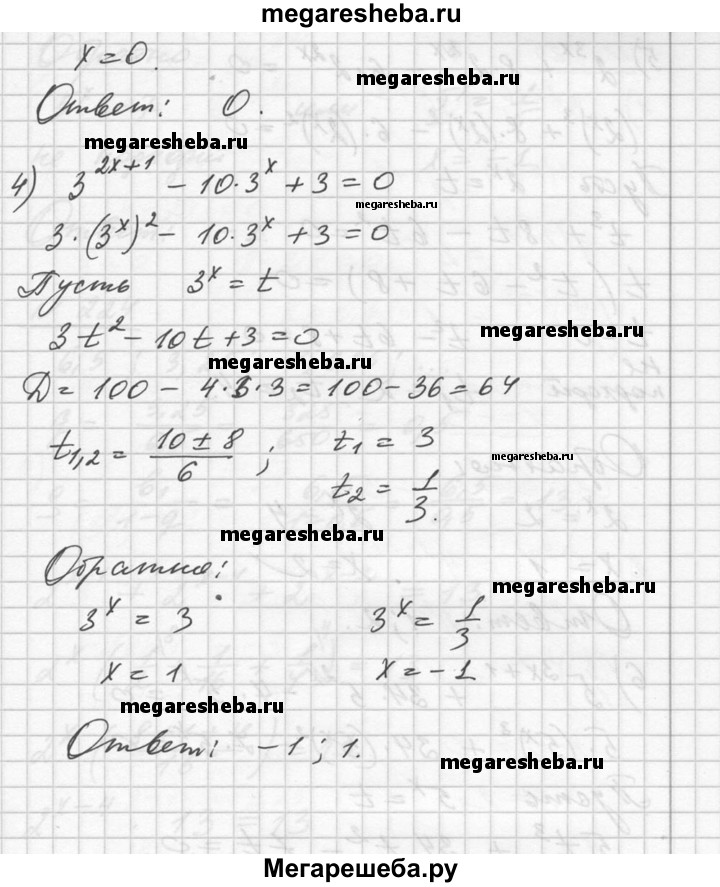 megaresheba.ru
x = 0.
megaresheba.ru
Ответ: 0.
megaresheba.ru
4) 3^{2x+1} - 10·3^x + 3 = 0
megaresheba.ru
3·(3^x)^2 - 10·3^x + 3 = 0
Пусть 3^x = t
3t^2 - 10t + 3 = 0
megaresheba.ru
megaresheba.ru
D = 100 - 4·3·3 = 100 - 36 = 64
t_{1,2} = (10 ± 8)/6 ; t_1 = 3
megaresheba.ru
t_2 = 1/3.
megaresheba.ru
Обратно:
megaresheba.ru
3^x = 3 3^x = 1/3
x = 1 x = -1
megaresheba.ru
Ответ: -1; 1.
megaresheba.ru
Мегарешеба.ру